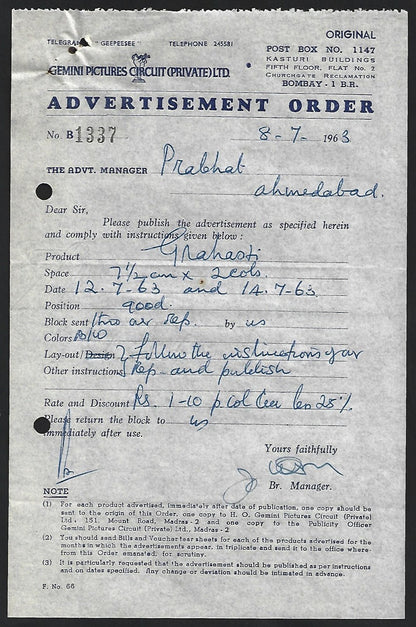 ORIGINAL
TELEGRAM "GEEPEESEE" TELEPHONE 245581
POST BOX NO. 1147
KASTURI BUILDINGS
FIFTH FLOOR, FLAT No. 2
CHURCHGATE RECLAMATION
BOMBAY - 1 B.R.
GEMINI PICTURES CIRCUIT (PRIVATE) LTD.
ADVERTISEMENT ORDER
No. B 1337 8-7-1963
THE ADVT. MANAGER Prabhat
ahmedabad.
Dear Sir,
Please publish the advertisement as specified herein
and comply with instructions given below :
Product Grahasti
Space 7 1/2 cm x 2 cols.
Date 12.7-63 and 14.7-63
Position good.
Block sent thro our rep. by us
Colors B/W
Lay-out/Design } Follow the instructions of our
Other instructions rep and publish
Rate and Discount Rs. 1-10 p col less 25%
Please return the block to us
immediately after use.
Yours faithfully
Br. Manager.
NOTE
(1) For each product advertised, immediately after date of publication, one copy should be
sent to the origin of this Order, one copy to H. O. Gemini Pictures Circuit (Private)
Ltd., 151, Mount Road, Madras - 2 and one copy to the Publicity Officer
Gemini Pictures Circuit (Private) Ltd., Madras - 2
(2) You should send Bills and Voucher tear sheets for each of the products advertised for the
months in which the advertisements appear, in triplicate and send it to the office where-
from this Order emanated, for scrutiny.
(3) It is particularly requested that the advertisement should be published as per instructions
and on dates specified. Any change or deviation should be intimated in advance.
F. No. 66